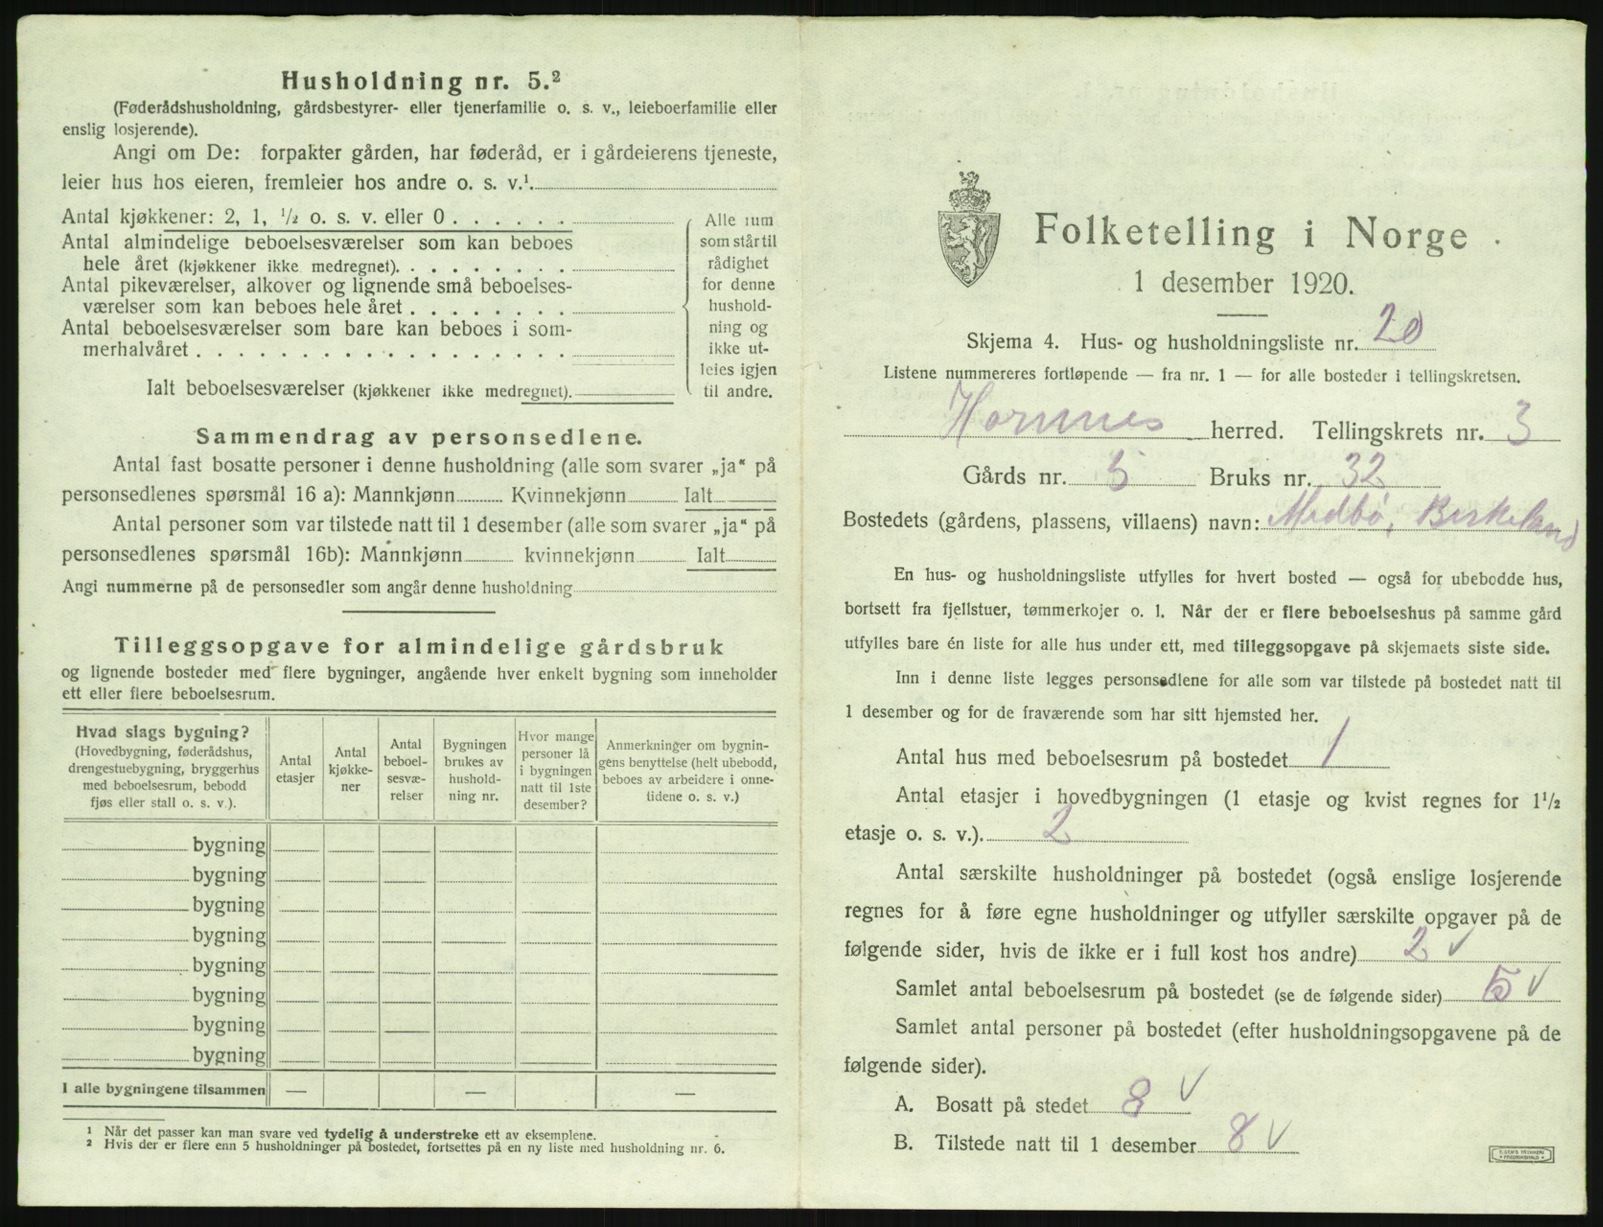 Husholdning nr. 5.²
(Føderådshusholdning, gårdsbestyrer- eller tjenerfamilie o. s. v., leieboerfamilie eller
enslig losjerende).
Angi om De: forpakter gården, har føderåd, er i gårdeierens tjeneste,
leier hus hos eieren, fremleier hos andre o. s. v.¹.
Antal kjøkkener: 2, 1, ½ o. s. v. eller 0 . . . . . .
Antal almindelige beboelsesværelser som kan beboes
hele året (kjøkkener ikke medregnet). . . . . . . . .
Antal pikeværelser, alkover og lignende små beboelses-
værelser som kan beboes hele året . . . . . . . .
Antal beboelsesværelser som bare kan beboes i som-
merhalvåret . . . . . . . . . . . . . . . . . .
Ialt beboelsesværelser (kjøkkener ikke medregnet).
Alle rum
som står til
rådighet
for denne
hushold-
ning og
ikke ut-
leies igjen
til andre.
Sammendrag av personsedlene.
Antal fast bosatte personer i denne husholdning (alle som svarer „ja“ på
personsedlenes spørsmål 16 a): Mannkjønn Kvinnekjønn Ialt
Antal personer som var tilstede natt til 1 desember (alle som svarer „ja“ på
personsedlenes spørsmål 16b): Mannkjønn kvinnekjønn Ialt
Angi nummerne på de personsedler som angår denne husholdning
Tilleggsopgave for almindelige gårdsbruk
og lignende bosteder med flere bygninger, angående hver enkelt bygning som inneholder
ett eller flere beboelsesrum.
Hvad slags bygning?
(Hovedbygning, føderådshus,
drengestuebygning, bryggerhus
med beboelsesrum, bebodd
fjøs eller stall o. s. v.).
Antal
etasjer
Antal
kjøkke-
ner
Antal
beboel-
sesvæ-
relser
Bygningen
brukes av
hushold-
ning nr.
Hvor mange
personer lå
i bygningen
natt til 1ste
desember?
Anmerkninger om bygnin-
gens benyttelse (helt ubebodd,
beboes av arbeidere i onne-
tidene o. s. v.)
bygning
bygning
bygning
bygning
bygning
bygning
bygning
bygning
I alle bygningene tilsammen — — —
¹ Når det passer kan man svare ved tydelig å understreke ett av eksemplene.
² Hvis der er flere enn 5 husholdninger på bostedet, fortsettes på en ny liste med husholdning nr. 6.
Folketelling i Norge
1 desember 1920.
Skjema 4. Hus- og husholdningsliste nr. 20
Listene nummereres fortløpende — fra nr. 1 — for alle bosteder i tellingskretsen.
Hornnes herred. Tellingskrets nr. 3
Gårds nr. 5 Bruks nr. 32
Bostedets (gårdens, plassens, villaens) navn: Medbø, Birkeland
En hus- og husholdningsliste utfylles for hvert bosted — også for ubebodde hus,
bortsett fra fjellstuer, tømmerkojer o. l. Når der er flere beboelseshus på samme gård
utfylles bare én liste for alle hus under ett, med tilleggsopgave på skjemaets siste side.
Inn i denne liste legges personsedlene for alle som var tilstede på bostedet natt til
1 desember og for de fraværende som har sitt hjemsted her.
Antal hus med beboelsesrum på bostedet 1
Antal etasjer i hovedbygningen (1 etasje og kvist regnes for 1½
etasje o. s. v.). 2
Antal særskilte husholdninger på bostedet (også enslige losjerende
regnes for å føre egne husholdninger og utfyller særskilte opgaver på de
følgende sider, hvis de ikke er i full kost hos andre) 2 √
Samlet antal beboelsesrum på bostedet (se de følgende sider) 5 √
Samlet antal personer på bostedet (efter husholdningsopgavene på de
følgende sider).
A. Bosatt på stedet 8 √
B. Tilstede natt til 1 desember 8 √